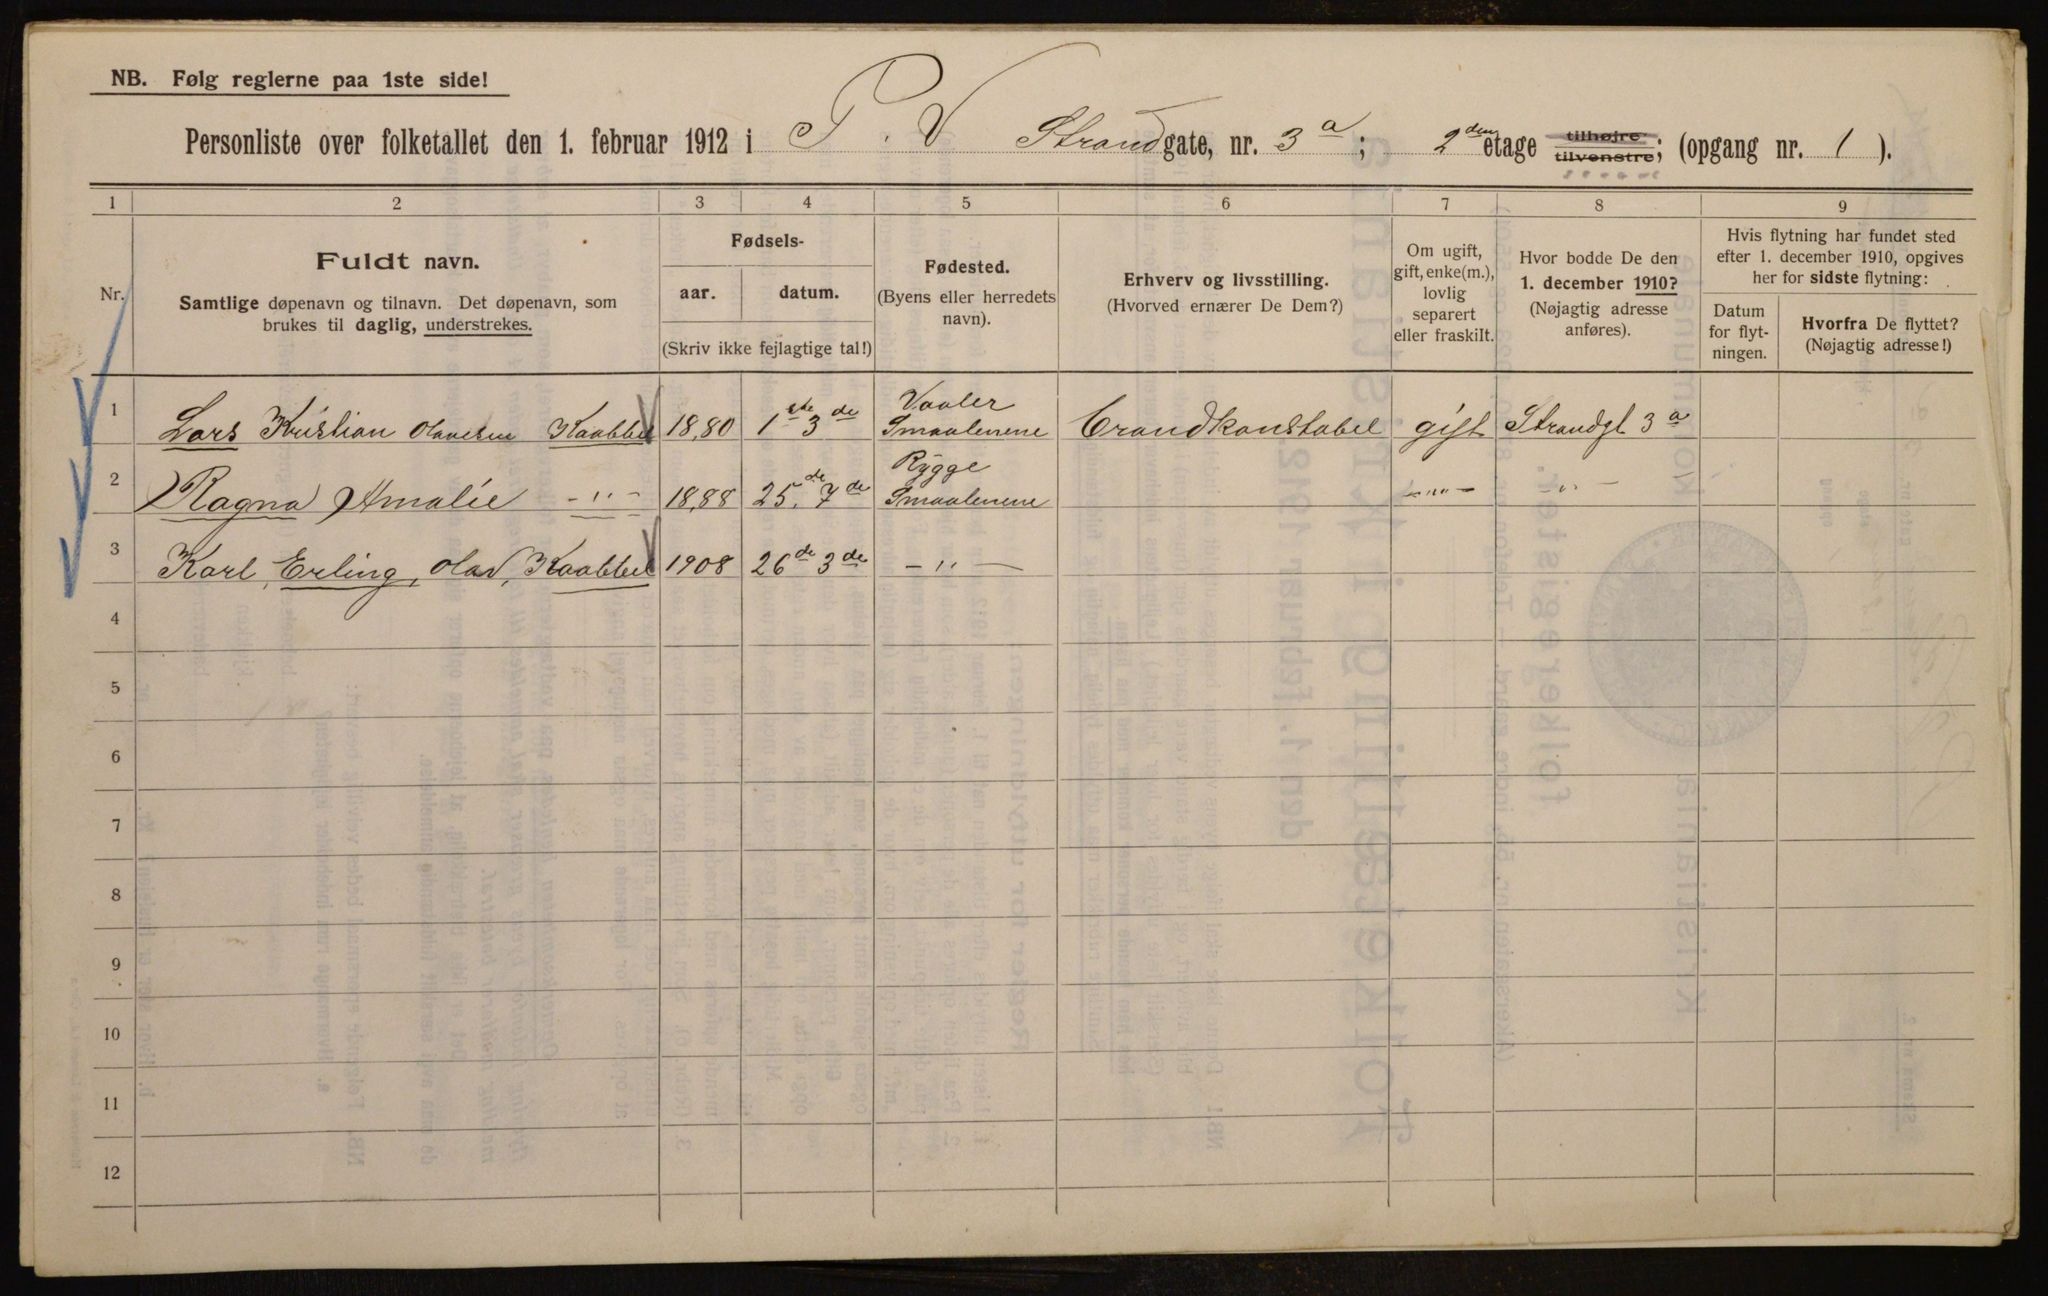 NB. Følg reglerne paa 1ste side!
Personliste over folketallet den 1. februar 1912 i P. V Strandgate, nr. 3 a ; 2den etage tilhøjre tilvenstre; (opgang nr. 1 ).
1 2 3 4 5 6 7 8 9
Nr.
Fuldt navn.
Samtlige døpenavn og tilnavn. Det døpenavn, som
brukes til daglig, understrekes.
Fødsels-
aar. datum.
(Skriv ikke fejlagtige tal!)
Fødested.
(Byens eller herredets
navn).
Erhverv og livsstilling.
(Hvorved ernærer De Dem?)
Om ugift,
gift, enke(m.),
lovlig
separert
eller fraskilt.
Hvor bodde De den
1. december 1910?
(Nøjagtig adresse
anføres).
Hvis flytning har fundet sted
efter 1. december 1910, opgives
her for sidste flytning:
Datum
for flyt-
ningen.
Hvorfra De flyttet?
(Nøjagtig adresse!)
1 Lars Kristian Olavesen Kaabbel 1880 1ste 3de Vaaler Smaalenene Brandkonstabel gift Strandgt 3 a
2 Ragna Amalie -"- 1888 25.de 7de Rygge Smaalenene -"- -"-
3 Karl, Erling, Olav, Kaabbel 1908 26de 3de -"-
4
5
6
7
8
9
10
11
12